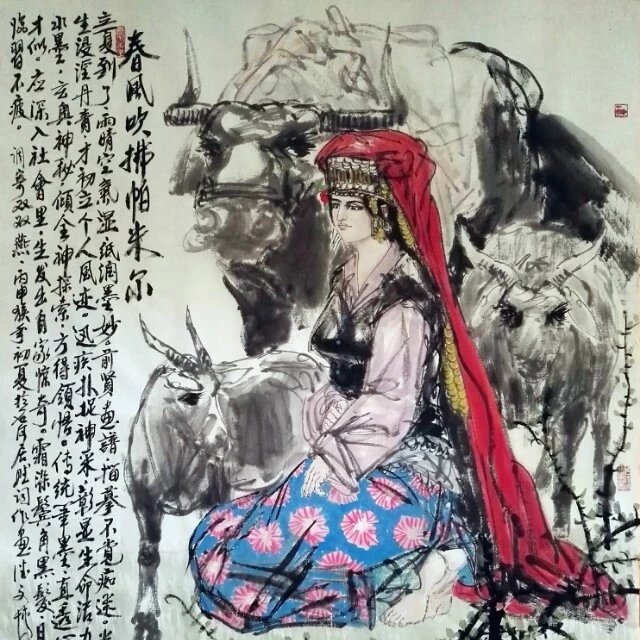 春風吹拂帕米尔
立夏到了雨晴空氣湿纸润墨妙前賢画譜描摹不覺痴迷半
生浸淫丹青才初立个人風迹迅疾扑捉神采彰显生命活力
水墨玄奥神秘傾全神探索方得領悟传統筆墨直透
才似應深入社會里生发出自家惊奇霜染鬓角黑髮日
臨習不疲调寄双双燕丙申猴年初夏於居胜词作画